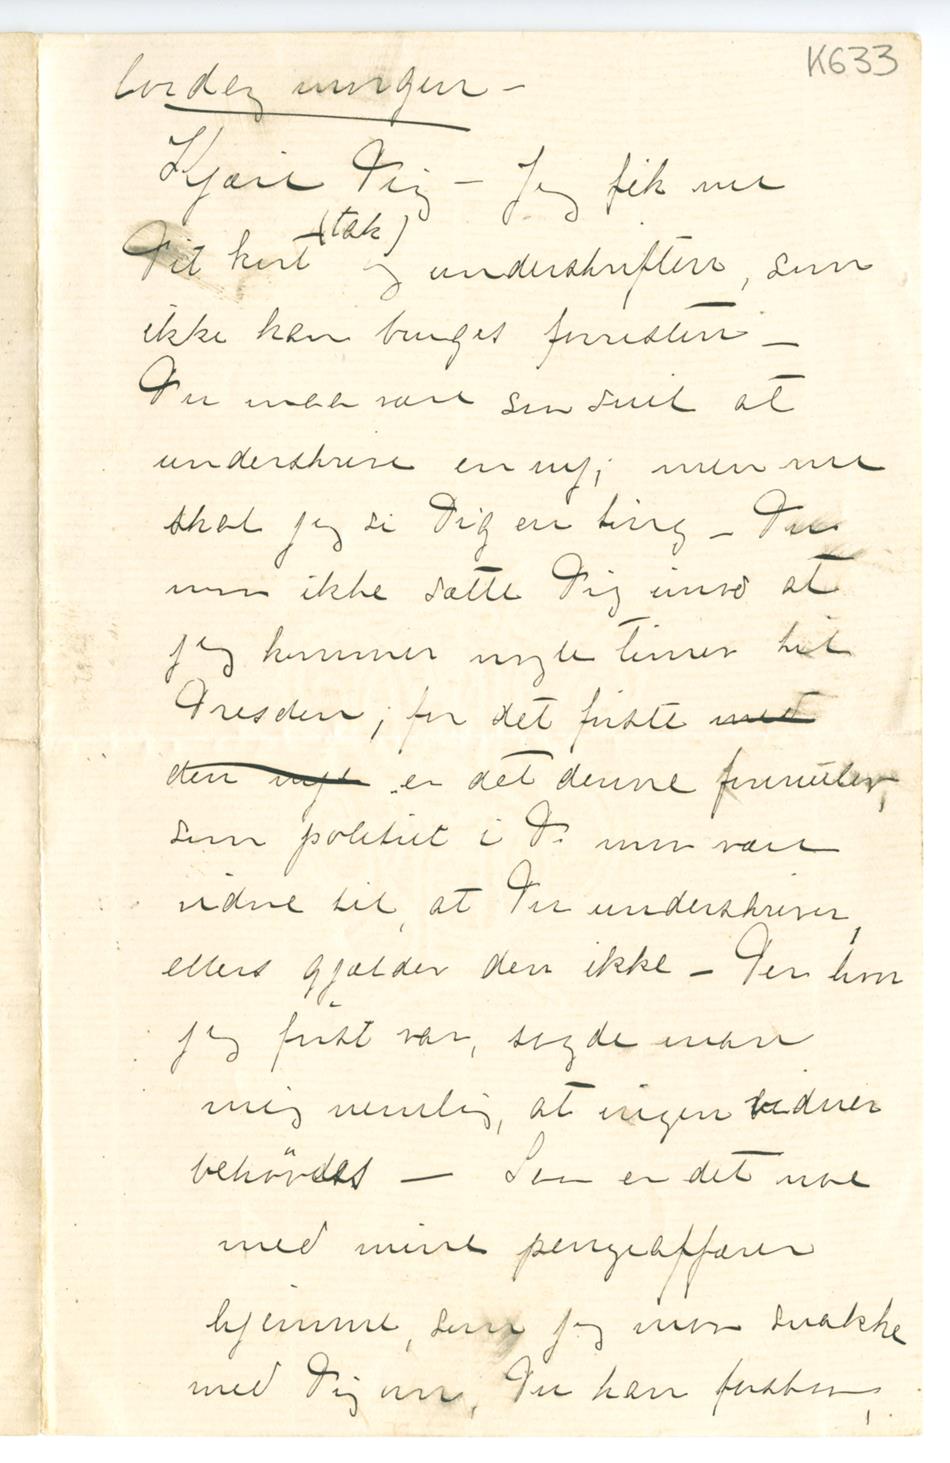 K633
Lördag morgen –
Kjære Dig – Jeg fik nu
Dit kort (tak) og underskriften, som
ikke kan bruges forresten –
Du maa være saa snil at
underskrive en ny; men nu
skal jeg si Dig en ting – Du
maa ikke sætte Dig imod at
jeg kommer nogle timer til
Dresden; for det første med
den nye er det denne formular,
som politiet i D. maa være
vidne til, at Du underskriver,
ellers gjælder den ikke – Der hvor
jeg først var, sagde man
mig nemlig, at ingen vidner
behövdes – Saa er det noe
med mine pengeaffærer
hjemme, som jeg maa snakke
med Dig om, Du kan forstaa,